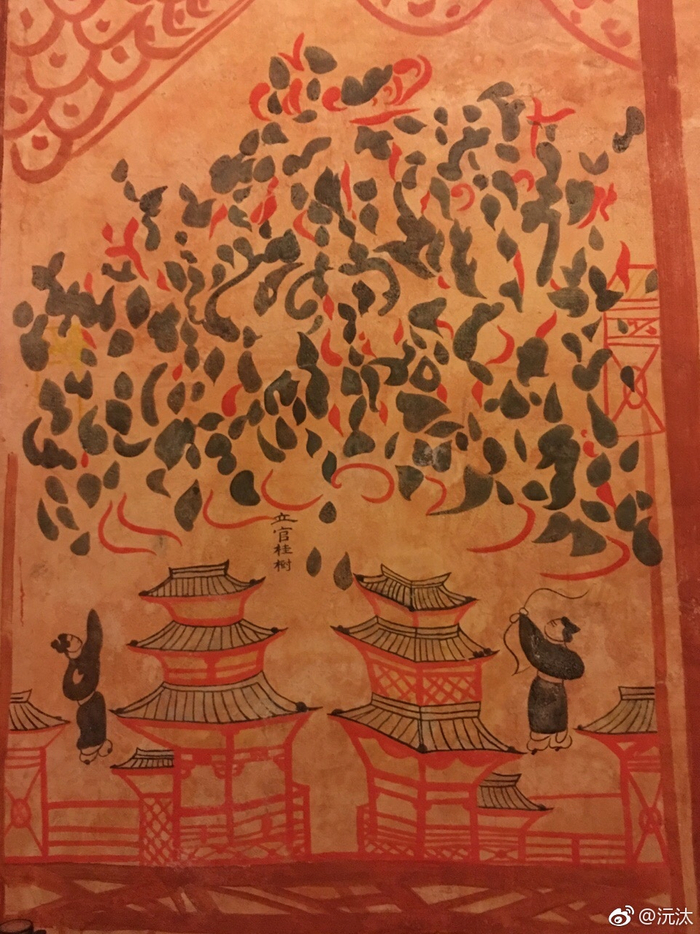 立官桂樹
@沅汰